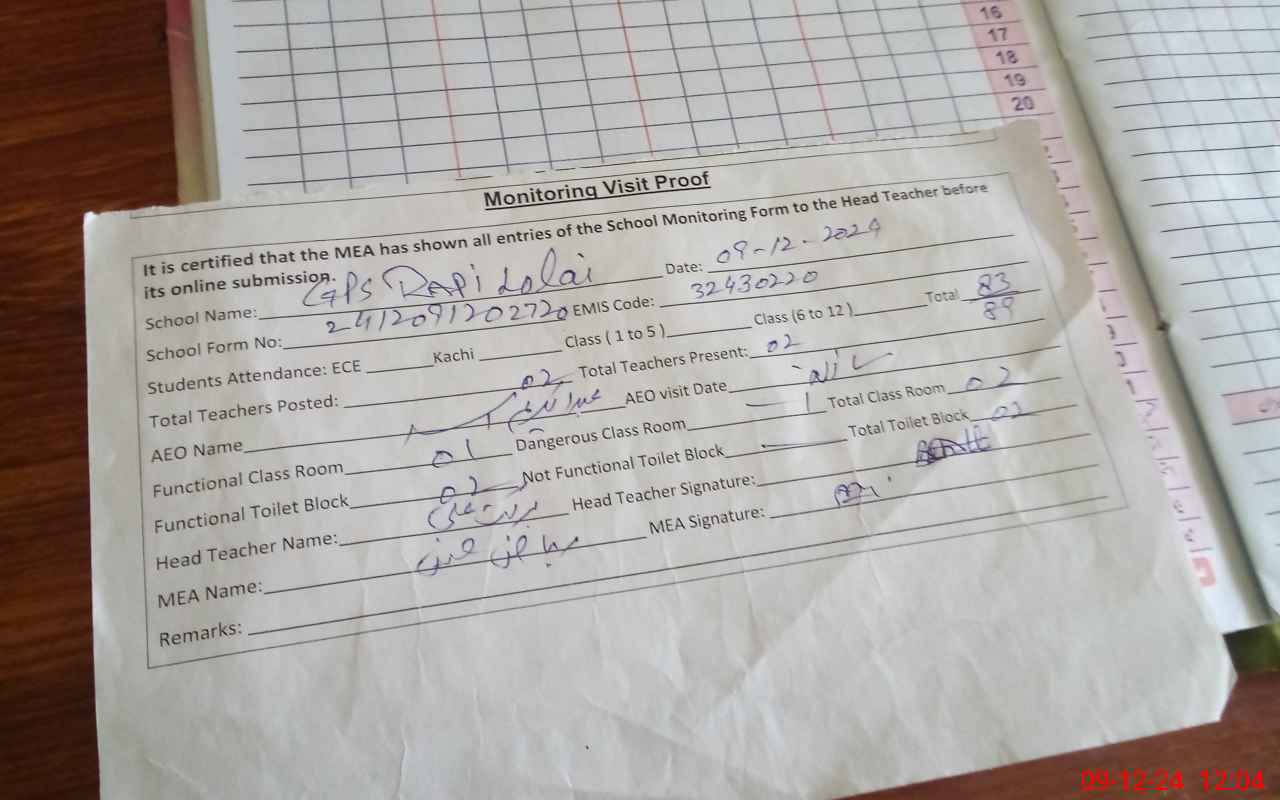 16
17
18
19
20
Monitoring Visit Proof
It is certified that the MEA has shown all entries of the School Monitoring Form to the Head Teacher before
its online submission.
School Name: GPS Date: 09-12-2024
School Form No: 2412091202720 EMIS Code: 32430220
Students Attendance: ECE Kachi Class ( 1 to 5 ) Class (6 to 12 ) Total 83
89
Total Teachers Posted: 02 Total Teachers Present: 02
AEO Name AEO visit Date
Functional Class Room 01 Dangerous Class Room 1 Total Class Room 02
Functional Toilet Block 02 Not Functional Toilet Block Total Toilet Block 02
Head Teacher Name: Head Teacher Signature:
MEA Name: MEA Signature:
Remarks:
09-12-24 12:04